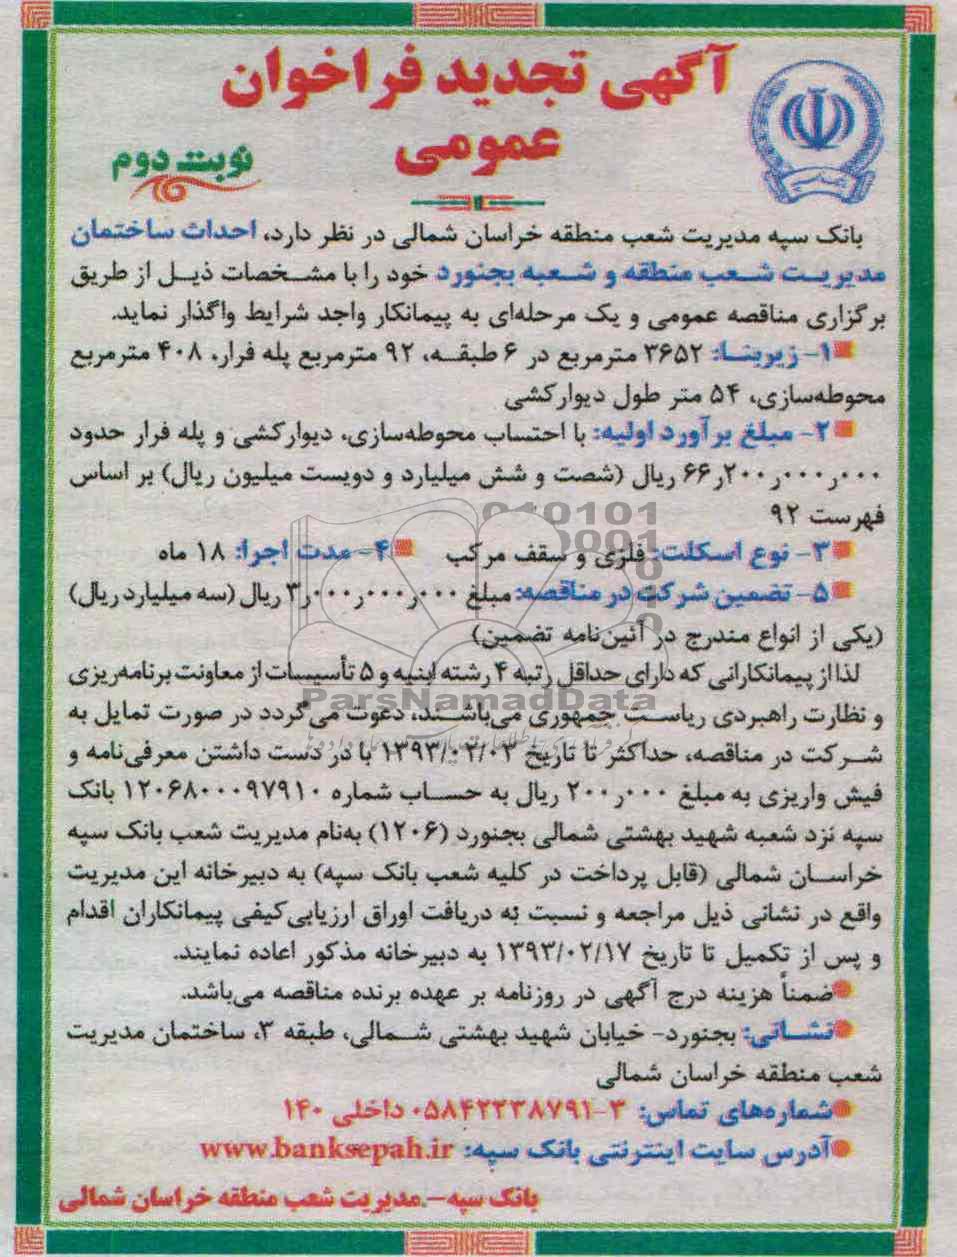 آگهی تجدید فراخوان
عمومی
نوبت دوم
بانک سپه مدیریت شعب منطقه خراسان شمالی در نظر دارد، احداث ساختمان
مدیریت شعب منطقه و شعبه بجنورد خود را با مشخصات ذیل از طریق
برگزاری مناقصه عمومی و یک مرحله‌ای به پیمانکار واجد شرایط واگذار نماید.
۱- زیربنا: ۳۶۵۲ مترمربع در ۶ طبقه، ۹۲ مترمربع پله فرار، ۴۰۸ مترمربع
محوطه‌سازی، ۵۴ متر طول دیوارکشی
۲- مبلغ برآورد اولیه: با احتساب محوطه‌سازی، دیوارکشی و پله فرار حدود
۶۶٫۲۰۰٫۰۰۰٫۰۰۰ ریال (شصت و شش میلیارد و دویست میلیون ریال) بر اساس
فهرست ۹۲
۳- نوع اسکلت: فلزی و سقف مرکب ۴- مدت اجرا: ۱۸ ماه
۵- تضمین شرکت در مناقصه: مبلغ ۳٫۰۰۰٫۰۰۰٫۰۰۰ ریال (سه میلیارد ریال)
(یکی از انواع مندرج در آئین‌نامه تضمین)
لذا از پیمانکارانی که دارای حداقل رتبه ۴ رشته ابنیه و ۵ تأسیسات از معاونت برنامه‌ریزی
ParsNamadData
و نظارت راهبردی ریاست جمهوری می‌باشند، دعوت می‌گردد در صورت تمایل به
شرکت در مناقصه، حداکثر تا تاریخ ۱۳۹۳/۰۲/۰۳ با در دست داشتن معرفی‌نامه و
فیش واریزی به مبلغ ۲۰۰٫۰۰۰ ریال به حساب شماره ۱۲۰۶۸۰۰۰۹۷۹۱۰ بانک
سپه نزد شعبه شهید بهشتی شمالی بجنورد (۱۲۰۶) به‌نام مدیریت شعب بانک سپه
خراسان شمالی (قابل پرداخت در کلیه شعب بانک سپه) به دبیرخانه این مدیریت
واقع در نشانی ذیل مراجعه و نسبت به دریافت اوراق ارزیابی کیفی پیمانکاران اقدام
و پس از تکمیل تا تاریخ ۱۳۹۳/۰۲/۱۷ به دبیرخانه مذکور اعاده نمایند.
ضمناً هزینه درج آگهی در روزنامه بر عهده برنده مناقصه می‌باشد.
نشانی: بجنورد- خیابان شهید بهشتی شمالی، طبقه ۳، ساختمان مدیریت
شعب منطقه خراسان شمالی
شماره‌های تماس: ۳-۰۵۸۴۲۲۳۸۷۹۱ داخلی ۱۴۰
آدرس سایت اینترنتی بانک سپه: www.banksepah.ir
بانک سپه - مدیریت شعب منطقه خراسان شمالی